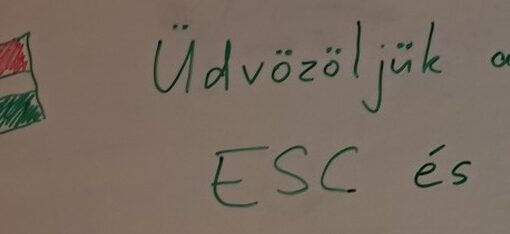 Üdvözöljük a
ESC és